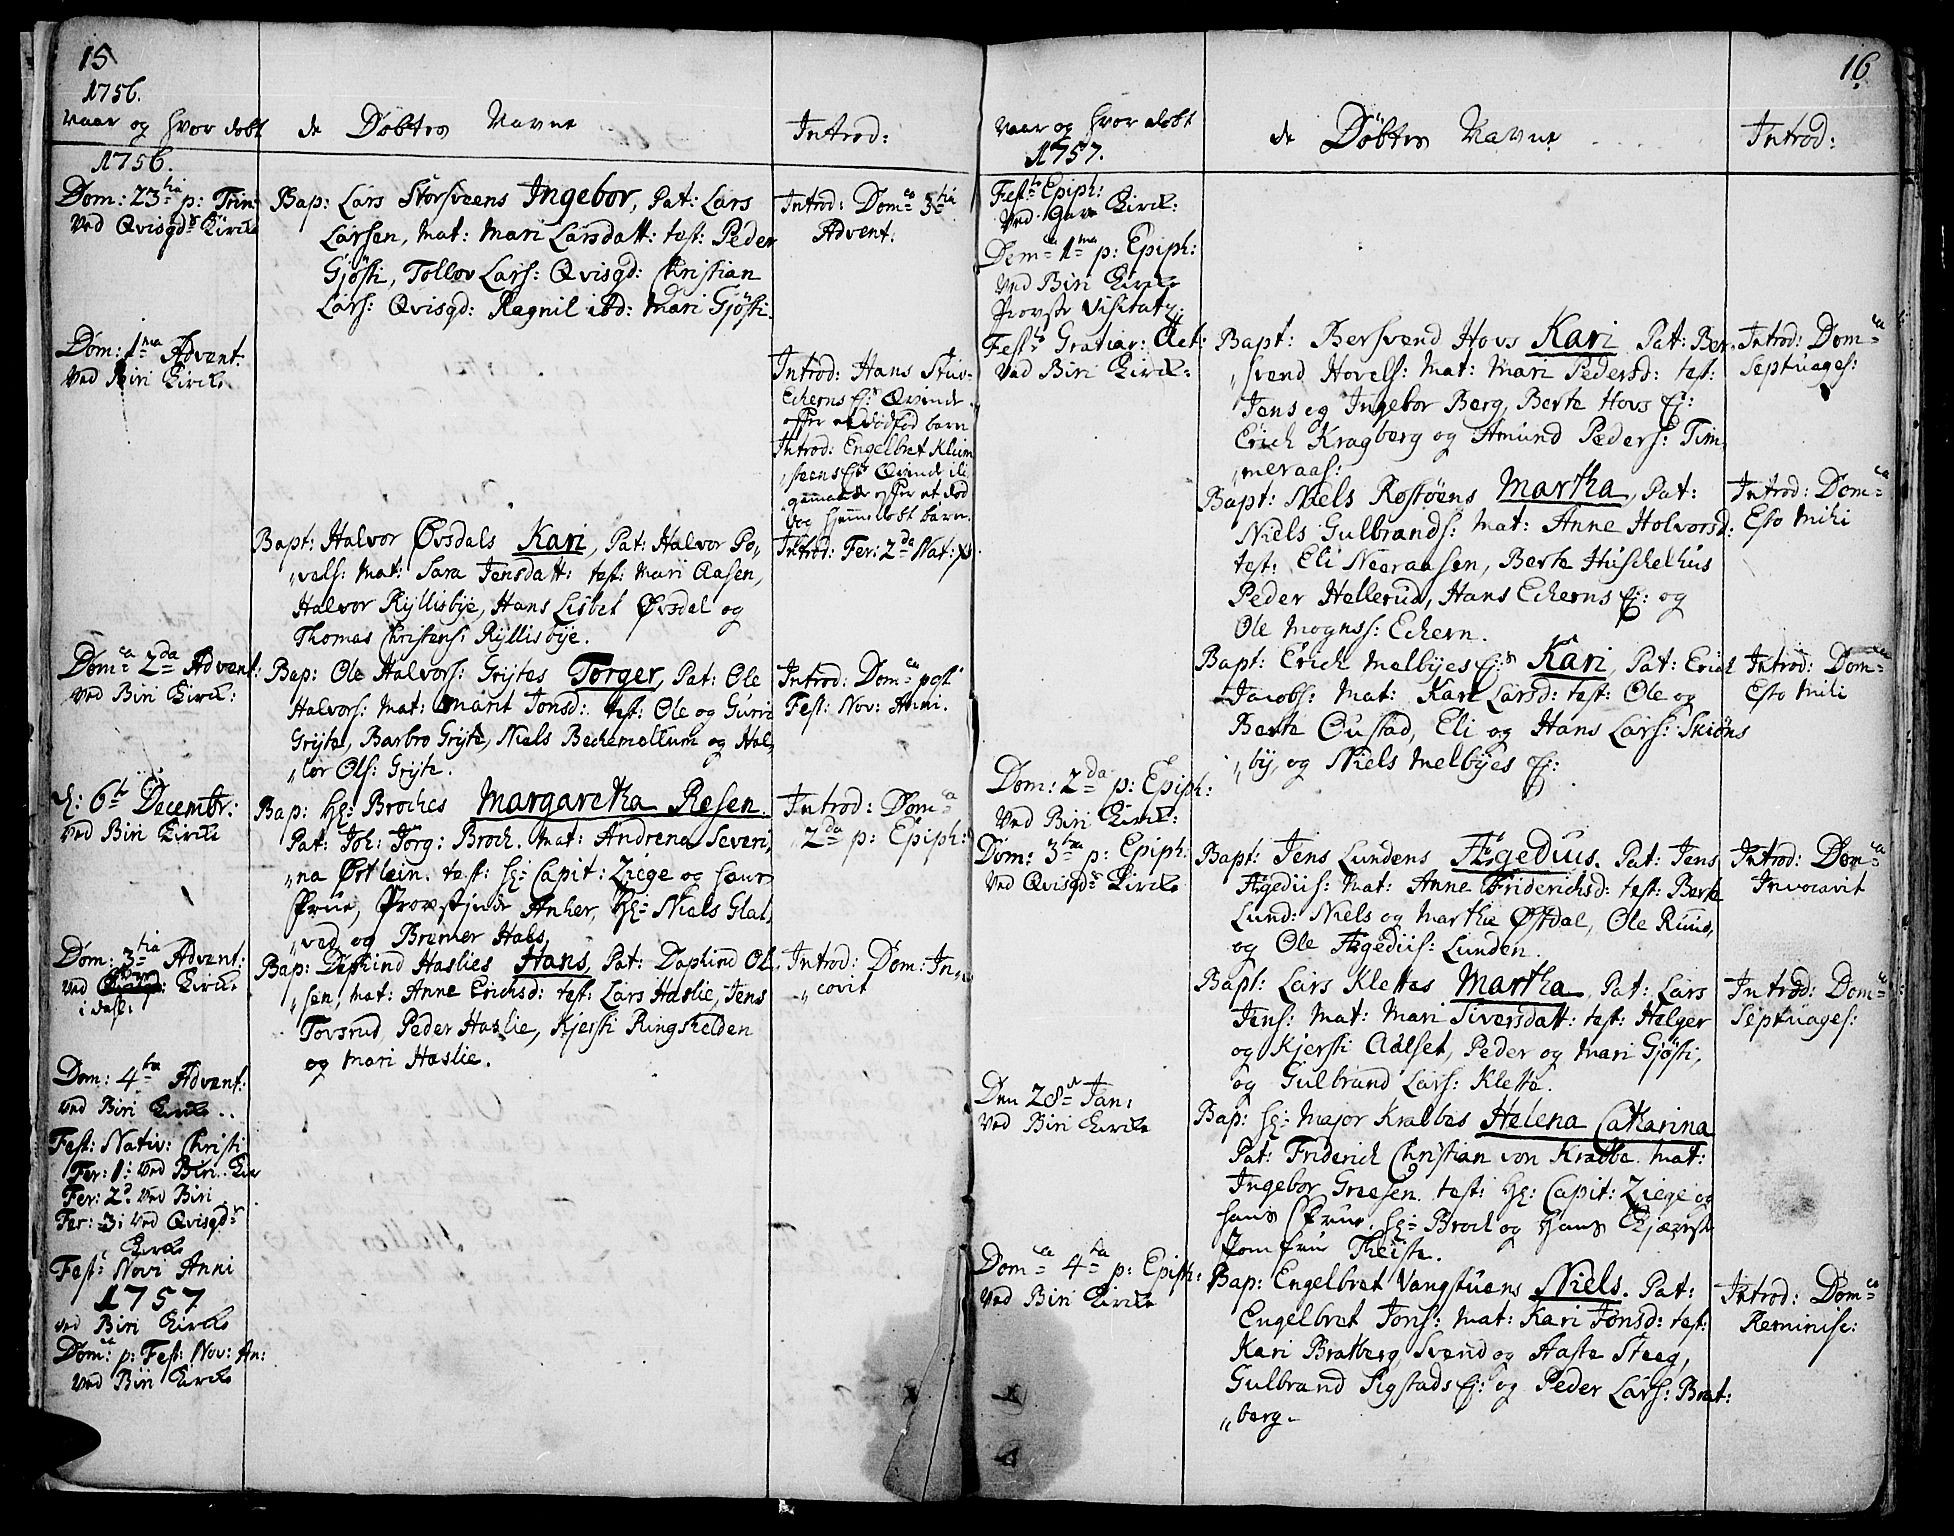 15
1756.
Naar og hvor döbt
de Döbtes Navne
Introd:
1756.
Dom: 23tia p: Trin:
Ved Qvisgds Kircke
Bap: Lars Storsveens Ingebor, Pat: Lars
Larsen, mat: Mari Larsdatt: test: Peder
Gjösti, Tollov Lars: Qvisgd: Christian
Lars: Qvisgd: Ragnil ibd: Mari Gjösti.
Introd: Domca 3tia
Advent:
Dom: 1ma Advent:
Ved Biri Kircke
Introd: Hans Stuv-
Echerns Ej: Qvinde
efter et dödföd barn
Introd: Engelbret Klum
„steens Ej: Qvinde ili
gemaade efter et död
og hjemedöbt barn.
Bapt: Halvor Øvsdals Kari, Pat: Halvor Po„
„vels: mat: Sara Jensdatt: test: Mari Aasen,
Halvor Ryllisbye, Hans Lisbet Øvsdal og
Thomas Christens: Ryllisbye.
Introd: Fer: 2da Nat: Xs.
Domca 2da Advent:
Ved Biri Kirck:
Bap: Ole Halvors: Grytes Torger, Pat: Ole
Halvors: mat: Marit Jonsd: test: Ole og Gurie
Gryte, Barbro Gryte, Niels Bechemellum og Hal„
„vor Ols: Gryte.
Introd: Domca post
Fest: Nov: Anni.
d: 6te Decembr:
Ved Biri Kircke
Bap: Hr: Broches Margaretha Resen.
Pat: Joh: Jörg: Broch. mat: Andrena Severi„
„na Østlein. test: Hr: Capit: Ziege og hans
Frue, Provstinde Anher, Hr: Niels Glal„
„ved og Bremer Hals,
Introd: Domca
2da p: Epiph:
Dom: 3tia Advent:
Ved Kircke
Bap: Daphind Haslies Hans, Pat: Daphind Ol„
„sen, mat: Anne Erichsd: test: Lars Haslie, Jens
Tovsrud, Peder Haslie, Kjersti Ringshelden
og Mari Haslie.
Introd: Dom: In„
„covit
Dom: 4ta Advent:
Ved Biri Kircke.
Fest: Nativ: Christi
Fer: 1: ved Biri Kir
Fer: 2d. ved Biri
Fer: 3: ved Qvisgds
Kircke
Fest: Novi Anni
1757
ved Biri Kircke
Domca p: Fest: Nov: An:
Ved Biri Kircke
16.
Naar og hvor döbt
1757.
de Döbtes Navne ....
Introd:
Fest: Epiph:
Ved Kirck:
Domca 1ma p: Epiph:
Ved Biri Kircke
Provste Visitatz
Fest: Gratiar: Act:
Ved Biri Kirck:
Bapt: Bersvend Hovs Kari Pat: Ber„
„svend Hovels: Mat: Mari Pedersd: test:
Jens og Ingebor Berg, Berte Hovs Ej:
Erich Kragberg og Amund Peders: Tim
„meraas:
Introd: Domca
Septuages:
Bapt: Niels Rostöens Martha, Pat:
Niels Gulbrands: Mat: Anne Holvorsd:
test: Eli Neeraasen, Berte Huschelhus
Peder Hellerud, Hans Echerns Ej: og
Ole Mognss: Echern.
Introd: Domca
Esto Mihi
Bapt: Erich Melbyes Ej: Kari, Pat: Erich
Jacobs: mat: Kari Larsd: test: Ole og
Berte Oustad, Eli og Hans Lars: Skiöns
„by, og Niels Melbyes Ej:
Introd: Domca
Esto Mihi
Dom: 2da p: Epiph:
Ved Biri Kirck:
Dom: 3tia p: Epiph:
Ved Qvisgds Kircke
Bapt: Jens Lundens Ægedius. Pat: Jens
Ægediis: Mat: Anne Friderichsd: test: Berte
Lund: Niels og Marthe Østdal, Ole Ruud,
og Ole Ægediis: Lunden.
Introd: Domca
Invocavit
Bapt: Lars Klettes Martha, Pat: Lars
Jens: mat: Mari Siversdatt: test: Helger
og Kjersti Aalset, Peder og Mari Gjösti,
og Gulbrand Lars: Klette.
Introd: Domca
Septuages:
Den 28de Jan:
Ved Biri Kircke
Bap: Hr: Major Krabbes Helena Catharina
Pat: Friderich Christian von Krabbe. Mat:
Ingebor Greesen. test: Hr: Capit: Ziege og
hans Frue, Hr: Broch og Hans Kjæreste
Jomfrue Theiste.
Domca 4ta p: Epiph:
Ved Biri Kircke
Bap: Engelbret Vangstuens Niels. Pat:
Engelbret Jons: Mat: Kari Jonsd: test:
Kari Bratberg, Svend og Aaste Steeg,
Gulbrand Sigstads Ej: og Peder Lars: Brat:
„berg.
Introd: Domca
Reminisc: